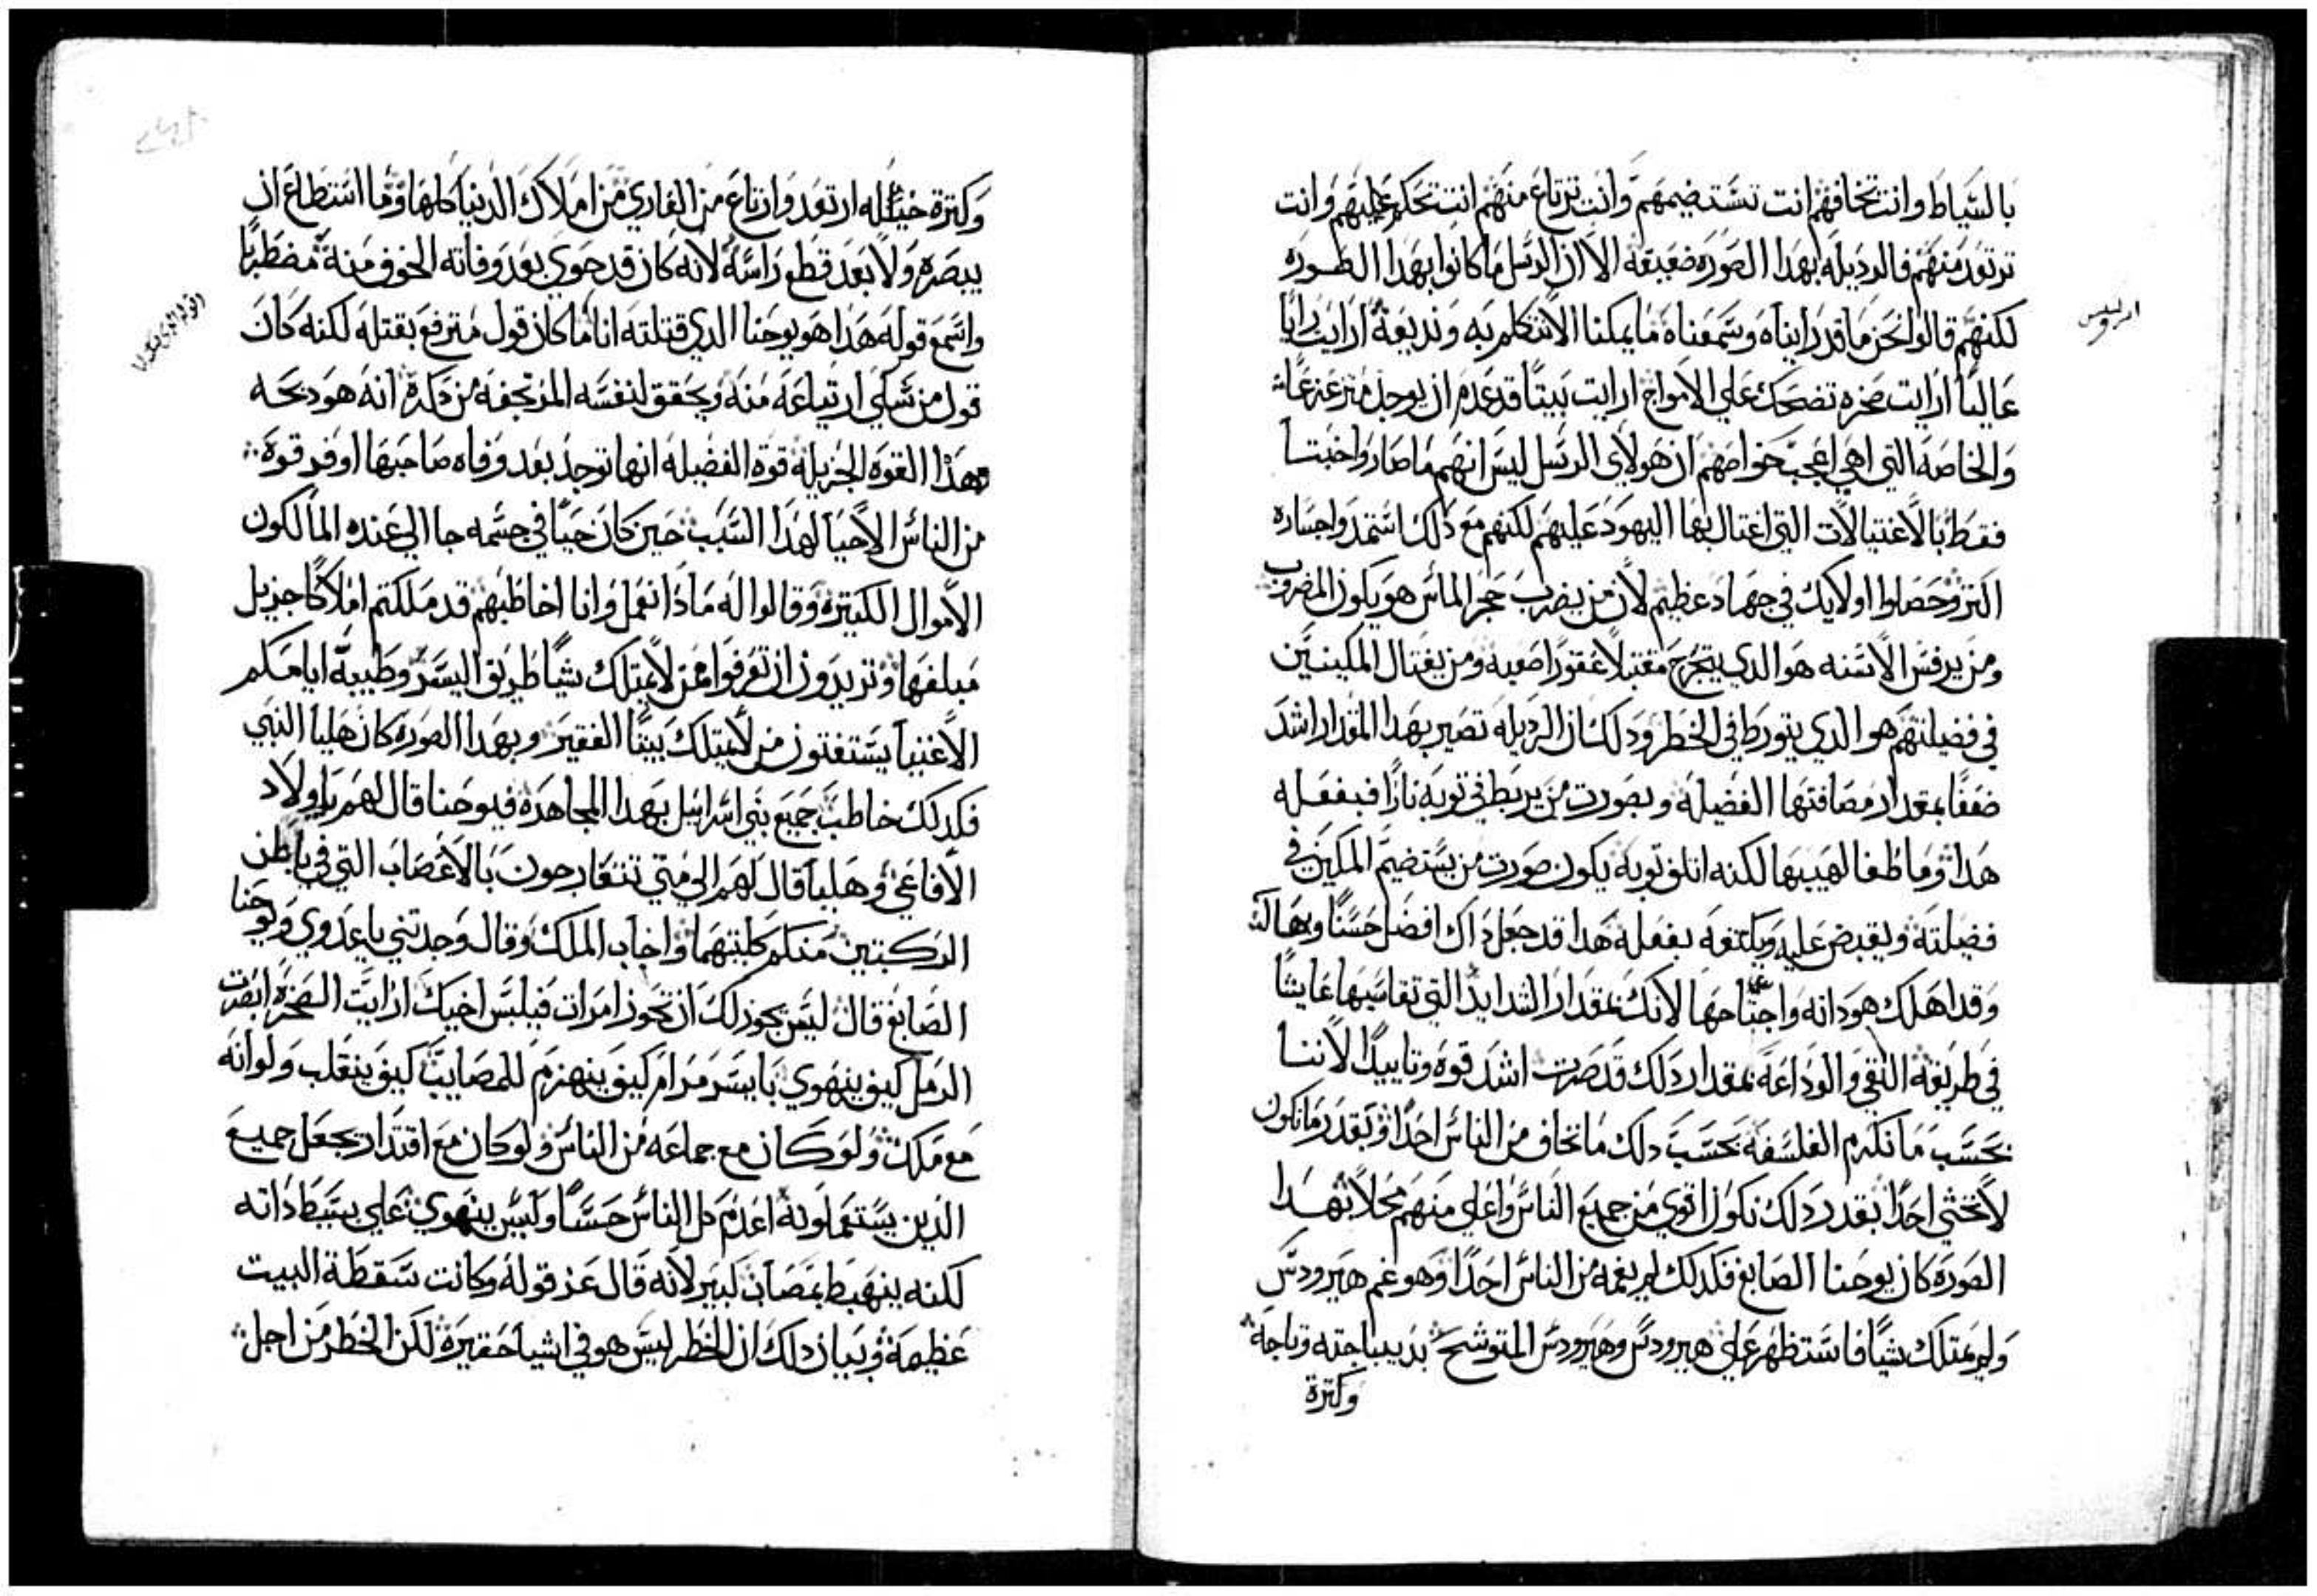 بالسياط وانت تخافهم انت تستضيمهم وانت ترتاع منهم انت تتحكم عليهم وانت
ترتعد منهم فالرديله بهدا الصوره ضعيفه الا ان الرسل ما كانوا بهدا الصوره
لكنهم قالوا نحن ما قد رايناه وسمعناه ما يمكنا الا نتكلم به ونديعه ارايت رايا
عاليا ارايت صخره تضحك علي الامواج ارايت بيتا قد عدم ان يوجد متزعزعا
والخاصه التي هي اعجب خواصهم ان هولاي الرسل ليس انهم ما صاروا خبتا
فقط بالاغتيالات التي اغتال بها اليهود عليهم لكنهم مع دلك استمدوا جساره
اكتر وحصلوا اولايك في جهاد عظيم لان من يضرب حجر الماس هو يكون المضروب
ومن يرفس الاسنه هو الدي يتجرح مقتبلا عقورا صعبه ومن يغتال المكينين
في فضيلتهم هو الدي يتورط في الخطر ودلك ان الرديله تصير بهدا المقدار اشد
ضعفا بمقدار مصافتها الفضيله وبصورت من يربط في توبه نارا فبفعله
هدا وما طفا لهيبها لكنه اتلف توبه يكون صورت من يستضيم المكين في
فضيلته ويقبض عليه ويكتفه بفعله هدا قد جعل داك افضل حسنا وبهالك
وقد اهلك هو داته واجتاحها لانك بمقدار الشدايد التي تقاسيها عايشا
في طريقة التقي والوداعه بمقدار دلك قد صرت اشد قوه وتاييدا لاننا
بحسب ما نكرم الفلسفه بحسب دلك ما نخاف من الناس احدا وبقدر ما نكون
لا نخشي احدا بقدر دلك نكون اقوي من جميع الناس واعلي منهم محلا بهدا
الصوره كان يوحنا الصابغ فكدلك لم يغمه من الناس احدا وهو غم هيرودس
ولم يمتلك شيا فاستظهر علي هيرودس وهيرودس المتوشح بديباجته وتاجه
وكترة
وكترة خيله ارتعد وارتاع من العاري من املاك الدنيا كلها وما استطاع ان
يبصره ولا بعد قطع راسه لانه كان قد حوي بعد وفاته الخوف منه مضطربا
واسمع قوله هدا هو يوحنا الدي قتلته انا ما كان قول مترفع بقتله لكنه كان
قول من شكي ارتياعه منه ويحقق لنفسه المرتجفه من دكره انه هو دبحه
فهدا القوه الجزيله قوة الفضيله انها توجد بعد وفاه صاحبها اوفر قوه
من الناس الاحيا لهدا السبب حين كان حيا في جسمه جا الي عنده المالكون
الاموال الكتيره وقالوا له مادا نعمل وانا اخاطبهم قد ملكتم املاكا جزيل
مبلغها وتريدون ان تعرفوا ممن لا يمتلك شيا طريق اليسر وطيبة ايامكم
الاغنيا يستفتون من لا يمتلك بيتا الفقير وبهدا الصوره كان هليا النبي
فكدلك خاطب جميع بني اسرايل بهدا المجاهده فيوحنا قال لهم يا ولاد
الافاعي وهليا قال لهم الي متي تتعارجون بالاعصاب التي في باطن
الركبتين منكم كلتيهما واخاب الملك وقال وجدتني يا عدوي ويوحنا
الصابغ قال ليس يجوز لك ان تحوز امرات فيلبس اخيك ارايت الصخره ابصرت
الرمل كيف ينهوي بايسر مرام كيف ينهزم للمصايب كيف ينقلب ولو انه
مع ملك ولو كان مع جماعه من الناس ولو كان مع اقتدار يجعل جميع
الدين يستعملونه اعدم كل الناس حسا وليس ينهوي علي بسيط داته
لكنه ينهبط بمصاب كبير لانه قال عن قوله وكانت سقطة البيت
عظيمه وبيان دلك ان الخطر ليس هو في اشيا حقيره لكن الخطر من اجل